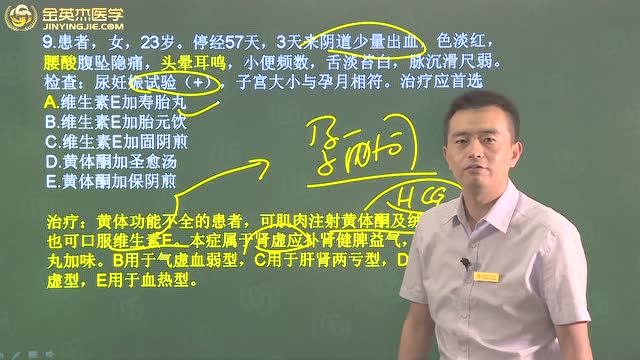 金英杰医学
JINYINGJIE.COM
9.患者，女，23岁。停经57天，3天来阴道少量出血，色淡红，
腰酸腹坠隐痛，头晕耳鸣，小便频数，舌淡苔白，脉沉滑尺弱。
检查：尿妊娠试验（+），子宫大小与孕月相符。治疗应首选
A.维生素E加寿胎丸
B.维生素E加胎元饮
C.维生素E加固阴煎
D.黄体酮加圣愈汤
E.黄体酮加保阴煎
孕酮
HCG
治疗：黄体功能不全的患者，可肌肉注射黄体酮及绒
也可口服维生素E。本症属于肾虚应补肾健脾益气，
丸加味。B用于气虚血弱型，C用于肝肾两亏型，D
虚型，E用于血热型。